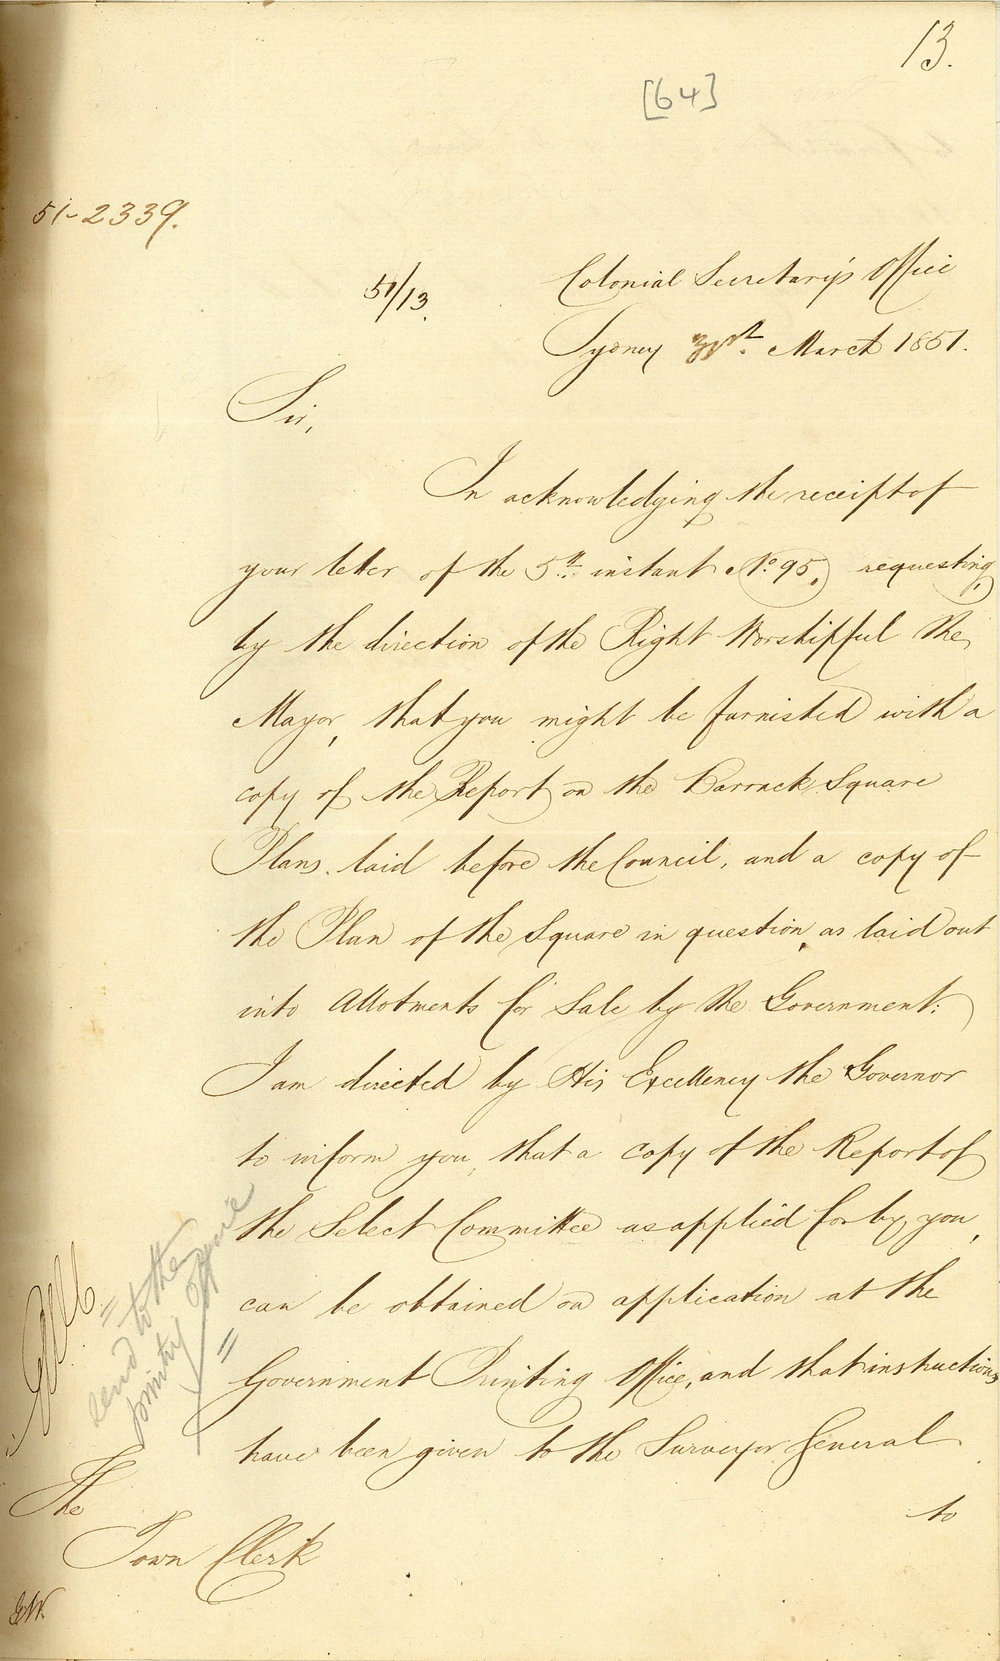 13.
[64]
51-2339.
51/13.
Colonial Secretary's Office
Sydney 31st. March 1851.
Sir,
In acknowledging the receipt of
your letter of the 5th. instant No. 95, requesting,
by the direction of the Right Worshipful the
Mayor, that you might be furnished with a
copy of the Report on the Barrack Square
Plans laid before the Council, and a copy of
the Plan of the Square in question, as laid out
into Allotments for Sale by the Government:
I am directed by His Excellency the Governor
to inform you, that a copy of the Report of
the Select Committee as applied for by you,
can be obtained on application at the
Government Printing Office, and that instructions
have been given to the Surveyor General
to
send to the
printing office
The
Town Clerk